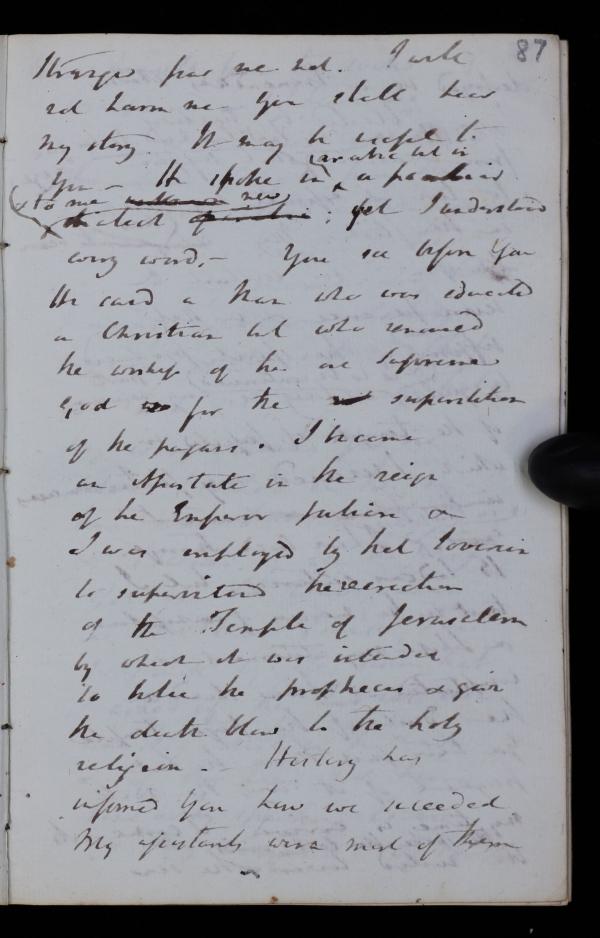 87
Stranger fear me not. I will
not harm me You shall hear
my story. It may be useful to
You – He spoke in arabic but in a peculiar
to me new
dialect ; yet I understood
every word, – You see before You
He said a Man who was educated
a Christian but who renounced
the worship of the one Supreme
God for the superstition
of the pagans. I became
an Apostate in the reign
of the Emperor Julian &
I was employed by that Sovereign
to superintend the reerection
of the Temple of Jerusalem
by which it was intended
to belie the prophecies & give
the death blow to the holy
religion. – History has
informed You how we succeeded
My assistants were most of them